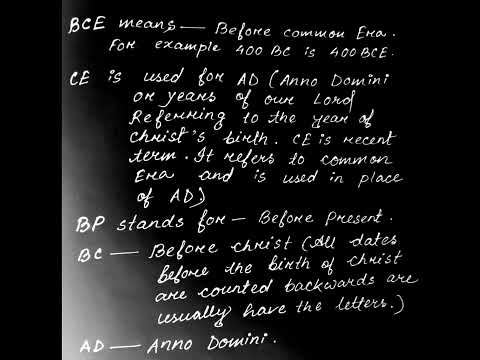 BCE means — Before common Era.
For example 400 BC is 400 BCE.
CE is used for AD (Anno Domini
or years of our Lord
Referring to the year of
christ's birth. CE is recent
term. It refers to common
Era and is used in place
of AD)
BP stands for — Before Present.
BC — Before christ (All dates
before the birth of christ
are counted backwards are
usually have the letters.)
AD — Anno Domini.